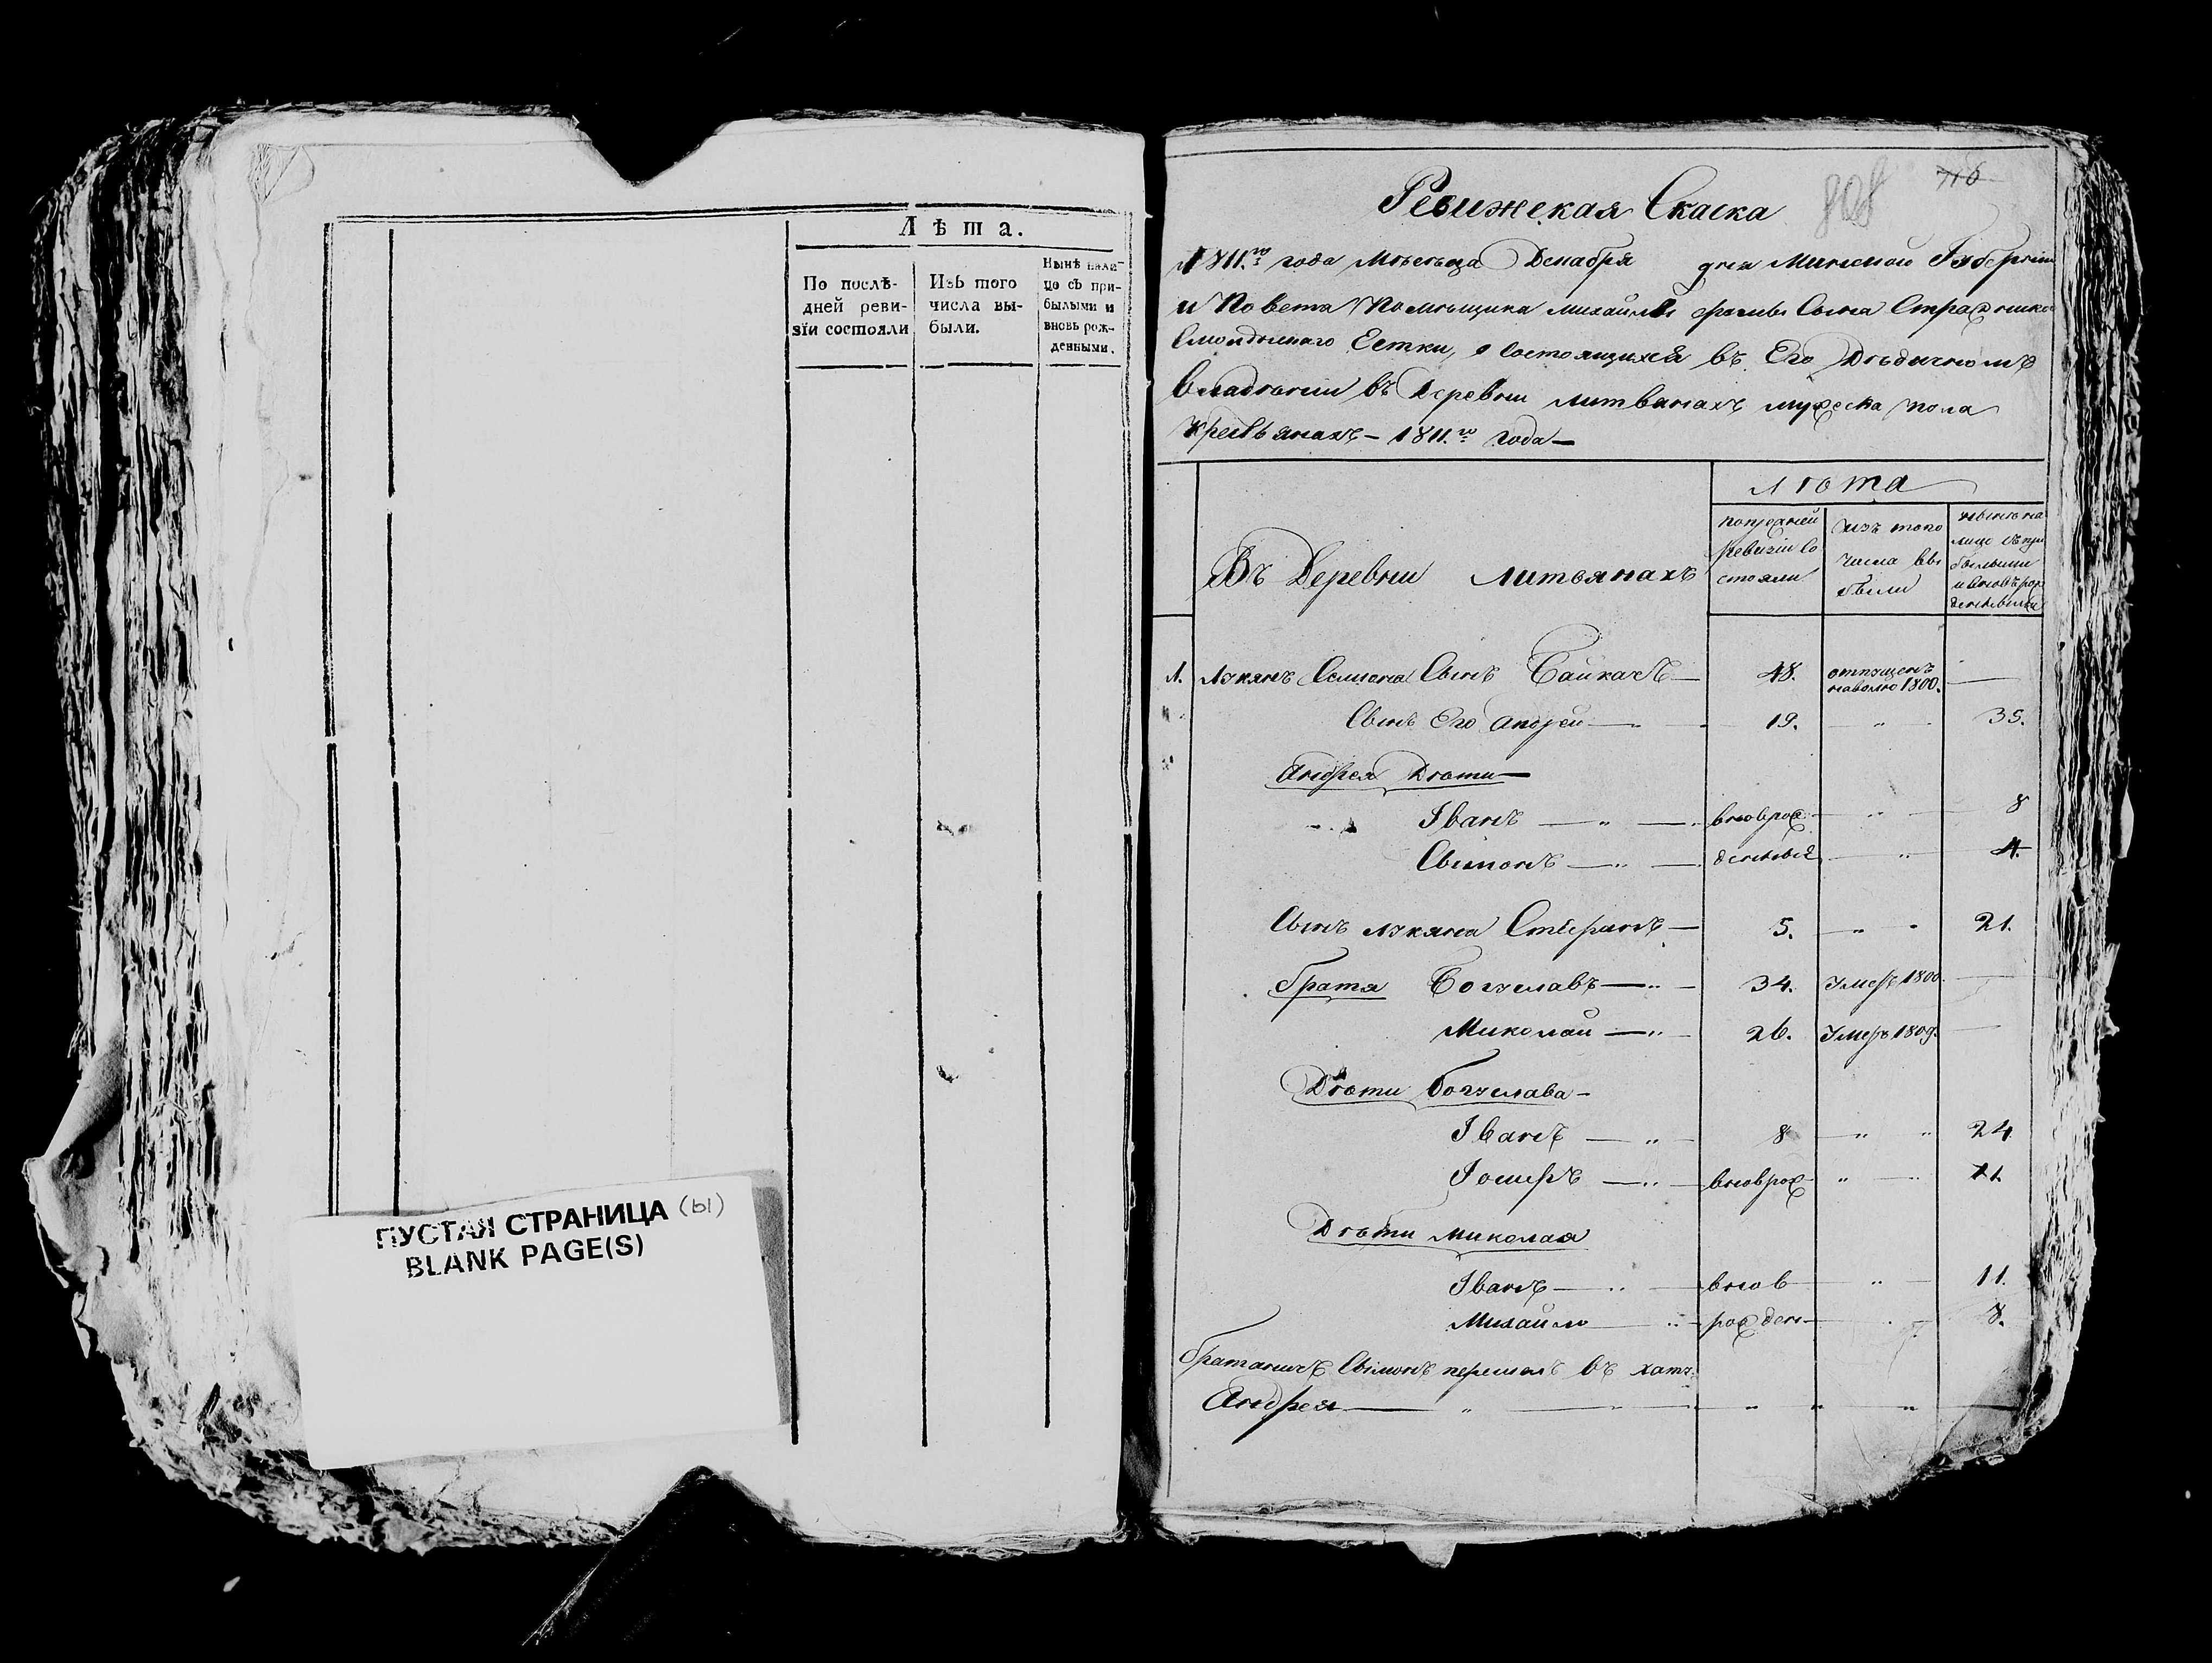 Лѣта.
По послѣ-
дней реви-
зіи состояли
Изъ того
числа вы-
были.
Нынѣ нали-
цо съ при-
былыми и
вновь рож-
денными.
ПУСТАЯ СТРАНИЦА (ы)
BLANK PAGE(S)
808 716
Ревижская Скаска
1811.го года Мѣсеца Декабря дня Минской Губерніи
и Повета Помѣщика Михайлы Сына
о состоящихся въ Его Дѣдичномъ
Владѣнии въ Деревни Литвянахъ мужеска пола
Крестьянахъ — 1811.го года —
Лѣта
Въ Деревни Литвянахъ
по последней
ревизіи со
стояли
изъ того
числа вы
были
нынѣ на
лицо съ при
былыми
и вновь рож
денными
1. Лукянъ Семiона Сынъ Байкачъ — 48. отпущенъ
наволю 1800. —
Сынъ Его Андрей — 19. — " — 35.
Андрея Дѣти —
Іванъ — " — вноврож — " — 8
Сымонъ — " — денныя — " — 4.
Сынъ Лукяна Стефанъ — 5. — " — 21.
братя Богуславъ — " — 34. Умеръ 1800. —
Миколай — " — 26. Умеръ 1809. —
Дѣти Богуслава —
Іванъ — " — 8 — " — " 24
Іосифъ — " — вноврож — " — 11.
Дѣти Миколая
Іванъ — " — внов — " — 11.
Михайло — " — рожден — " — 8.
братаничъ Сымонъ перешолъ въ хату
Андрея — " — " — " — " —